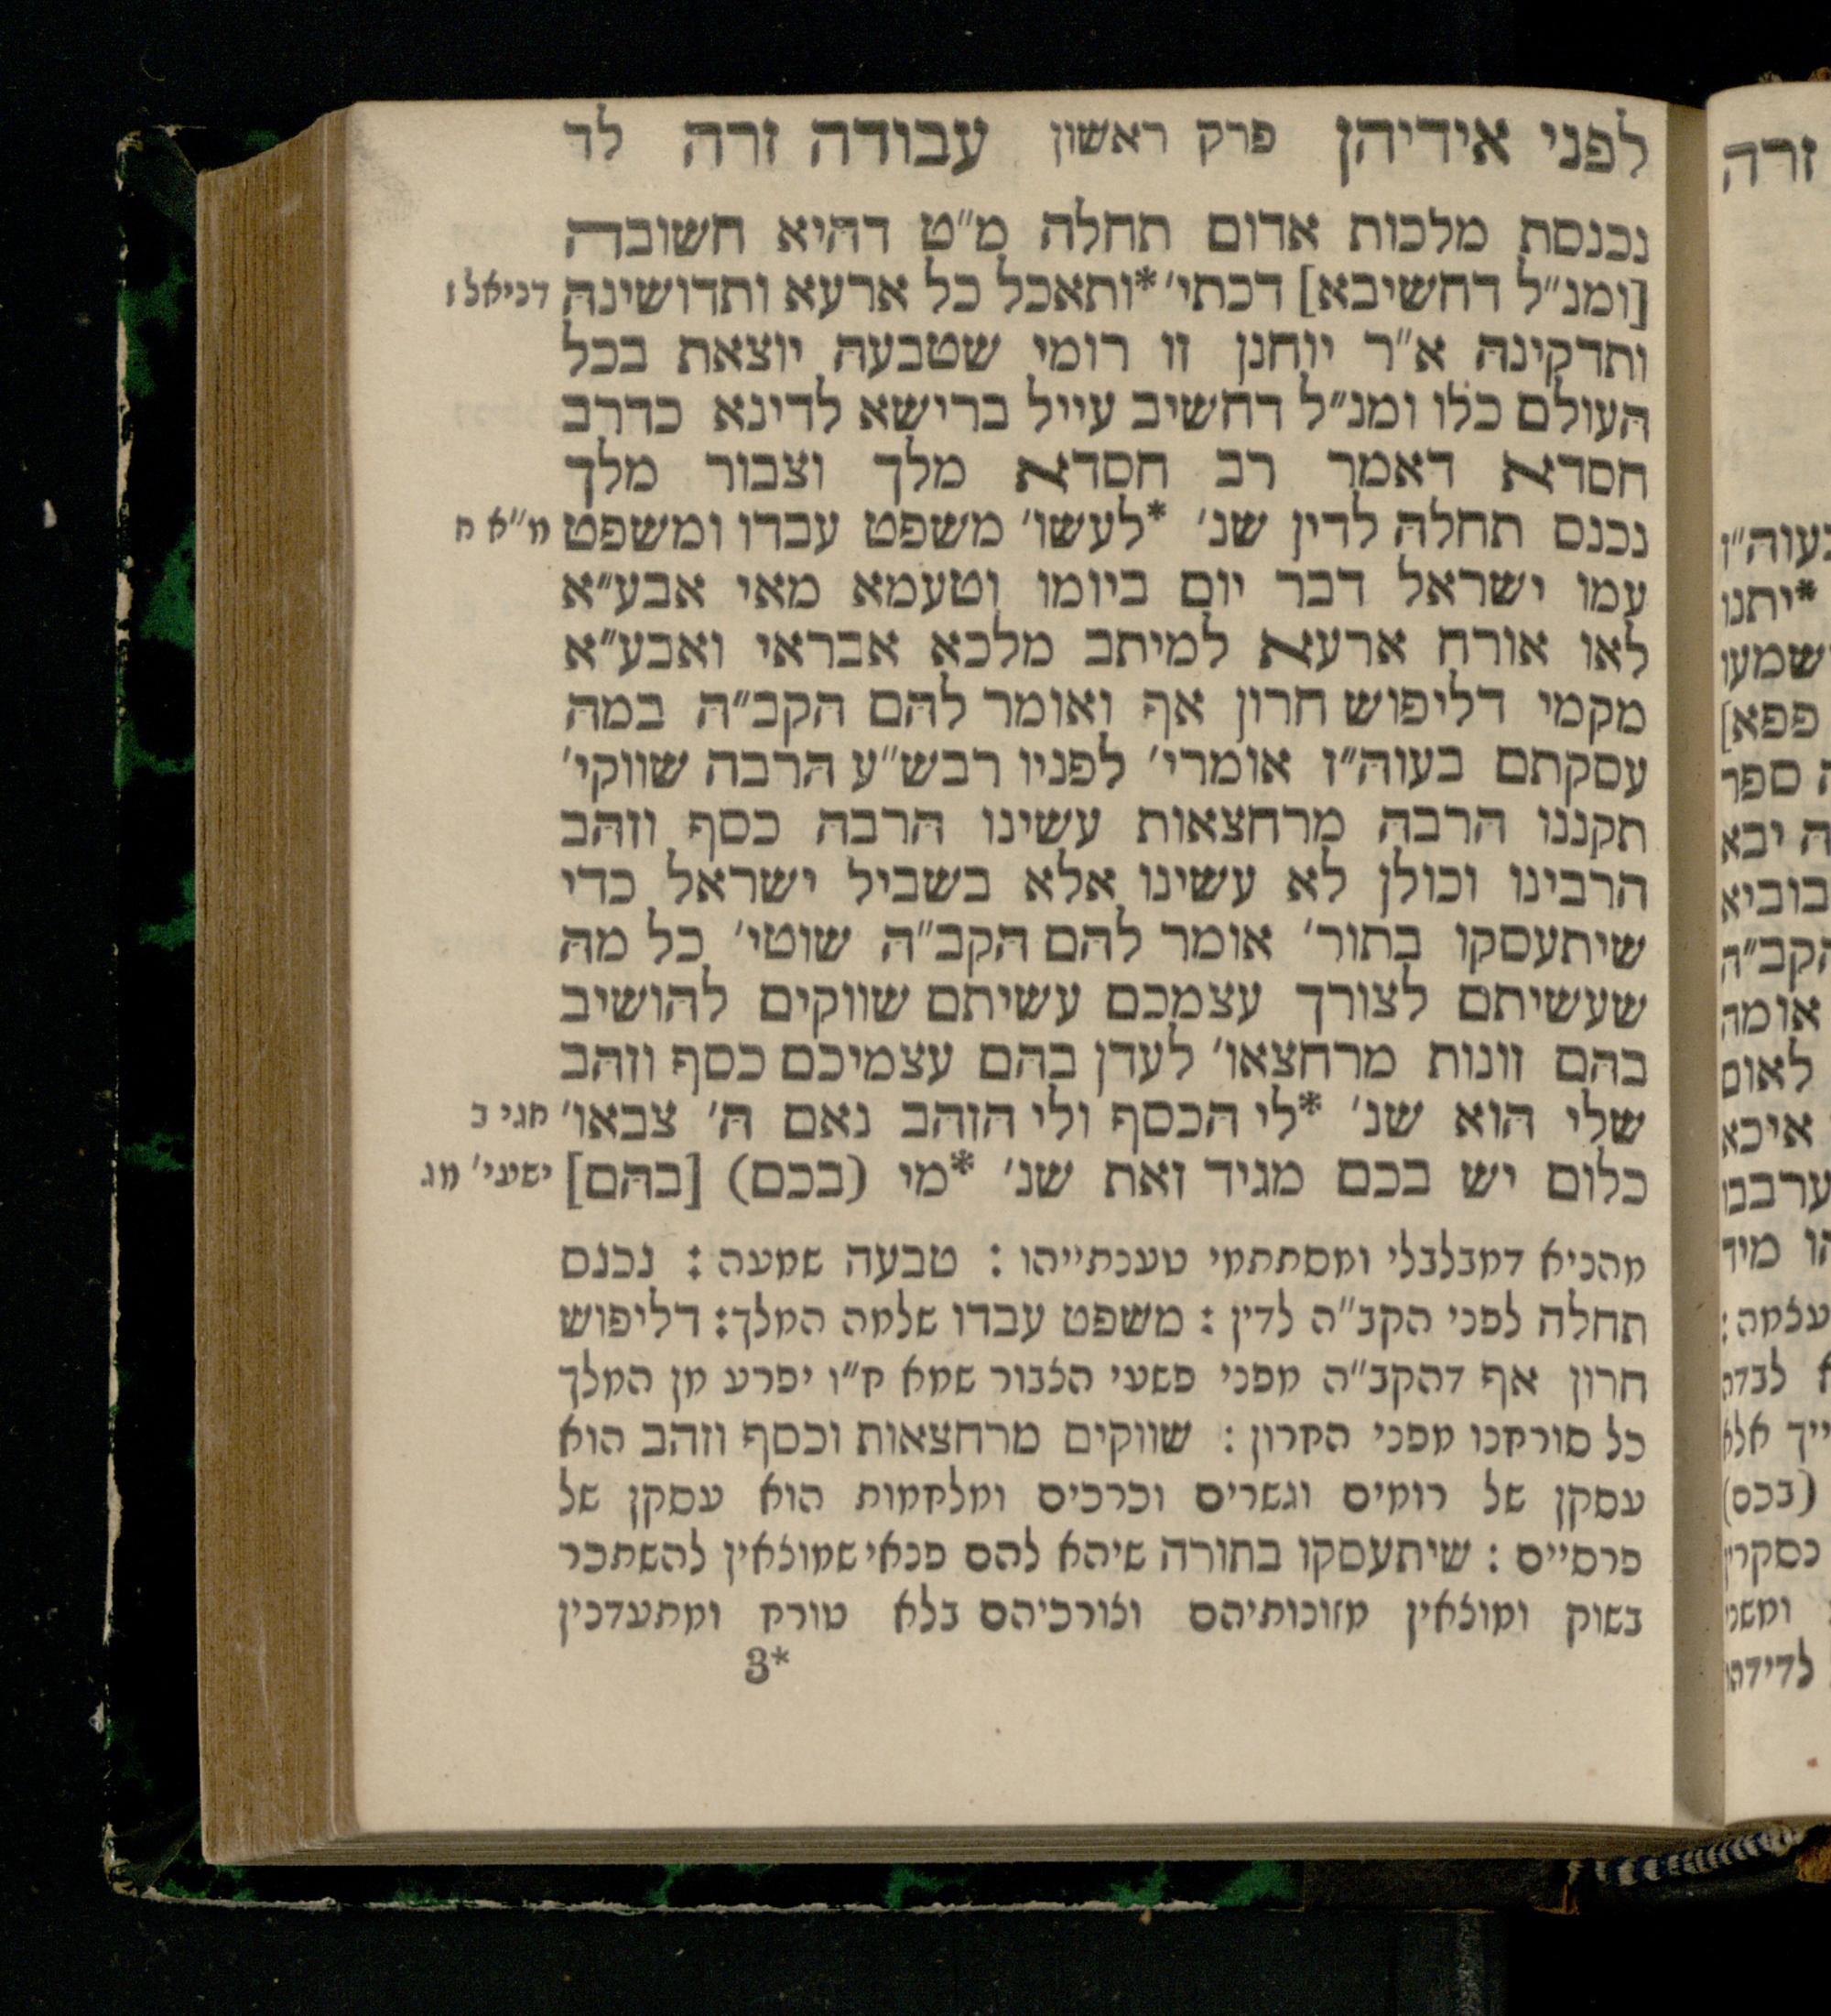 לפני אידיהן פרק ראשון עבודה זרה לד
נכנסת מלכות אדום תחלה מ״ט דהיא חשובה
[ומנ״ל דחשיבא] דכתי׳ *ותאכל כל ארעא ותדושינה דניאל ז
ותדקינה א״ר יוחנן זו רומי שטבעה יוצאת בכל
העולם כלו ומנ״ל דחשיב עייל ברישא לדינא כדרב
חסדא דאמר רב חסדא מלך וצבור מלך
נכנס תחלה לדין שנ׳ *לעשו׳ משפט עבדו ומשפט מ״א ח
עמו ישראל דבר יום ביומו וטעמא מאי אבע״א
לאו אורח ארעא למיתב מלכא אבראי ואבע״א
מקמי דליפוש חרון אף ואומר להם הקב״ה במה
עסקתם בעוה״ז אומרי׳ לפניו רבש״ע הרבה שווקי׳
תקננו הרבה מרחצאות עשינו הרבה כסף וזהב
הרבינו וכולן לא עשינו אלא בשביל ישראל כדי
שיתעסקו בתור׳ אומר להם הקב״ה שוטי׳ כל מה
שעשיתם לצורך עצמכם עשיתם שווקים להושיב
בהם זונות מרחצאו׳ לעדן בהם עצמיכם כסף וזהב
שלי הוא שנ׳ *לי הכסף ולי הזהב נאם ה׳ צבאו׳ חגי ב
כלום יש בכם מגיד זאת שנ׳ *מי (בכם) [בהם] ישעי׳ מג
מהניא דמבלבלי ומסתתמי טענתייהו : טבעה שמעה : נכנס
תחלה לפני הקב״ה לדין : משפט עבדו שלמה המלך: דליפוש
חרון אף דהקב״ה מפני פשעי הצבור שמא ח״ו יפרע מן המלך
כל סורחנו מפני החרון : שווקים מרחצאות וכסף וזהב הוא
עסקן של רומים וגשרים וכרכים ומלחמות הוא עסקן של
פרסיים : שיתעסקו בתורה שיהא להם פנאי שמוצאין להשתכר
בשוק ומוצאין מזונותיהם וצורכיהם בלא טורח ומתעדנין
3*
זרה
בעוה״ז
*יתנו
פפא]
ה ספר
ה יבא
הקב״ה
אומה
לאום
איכא
מיד
(בכם)